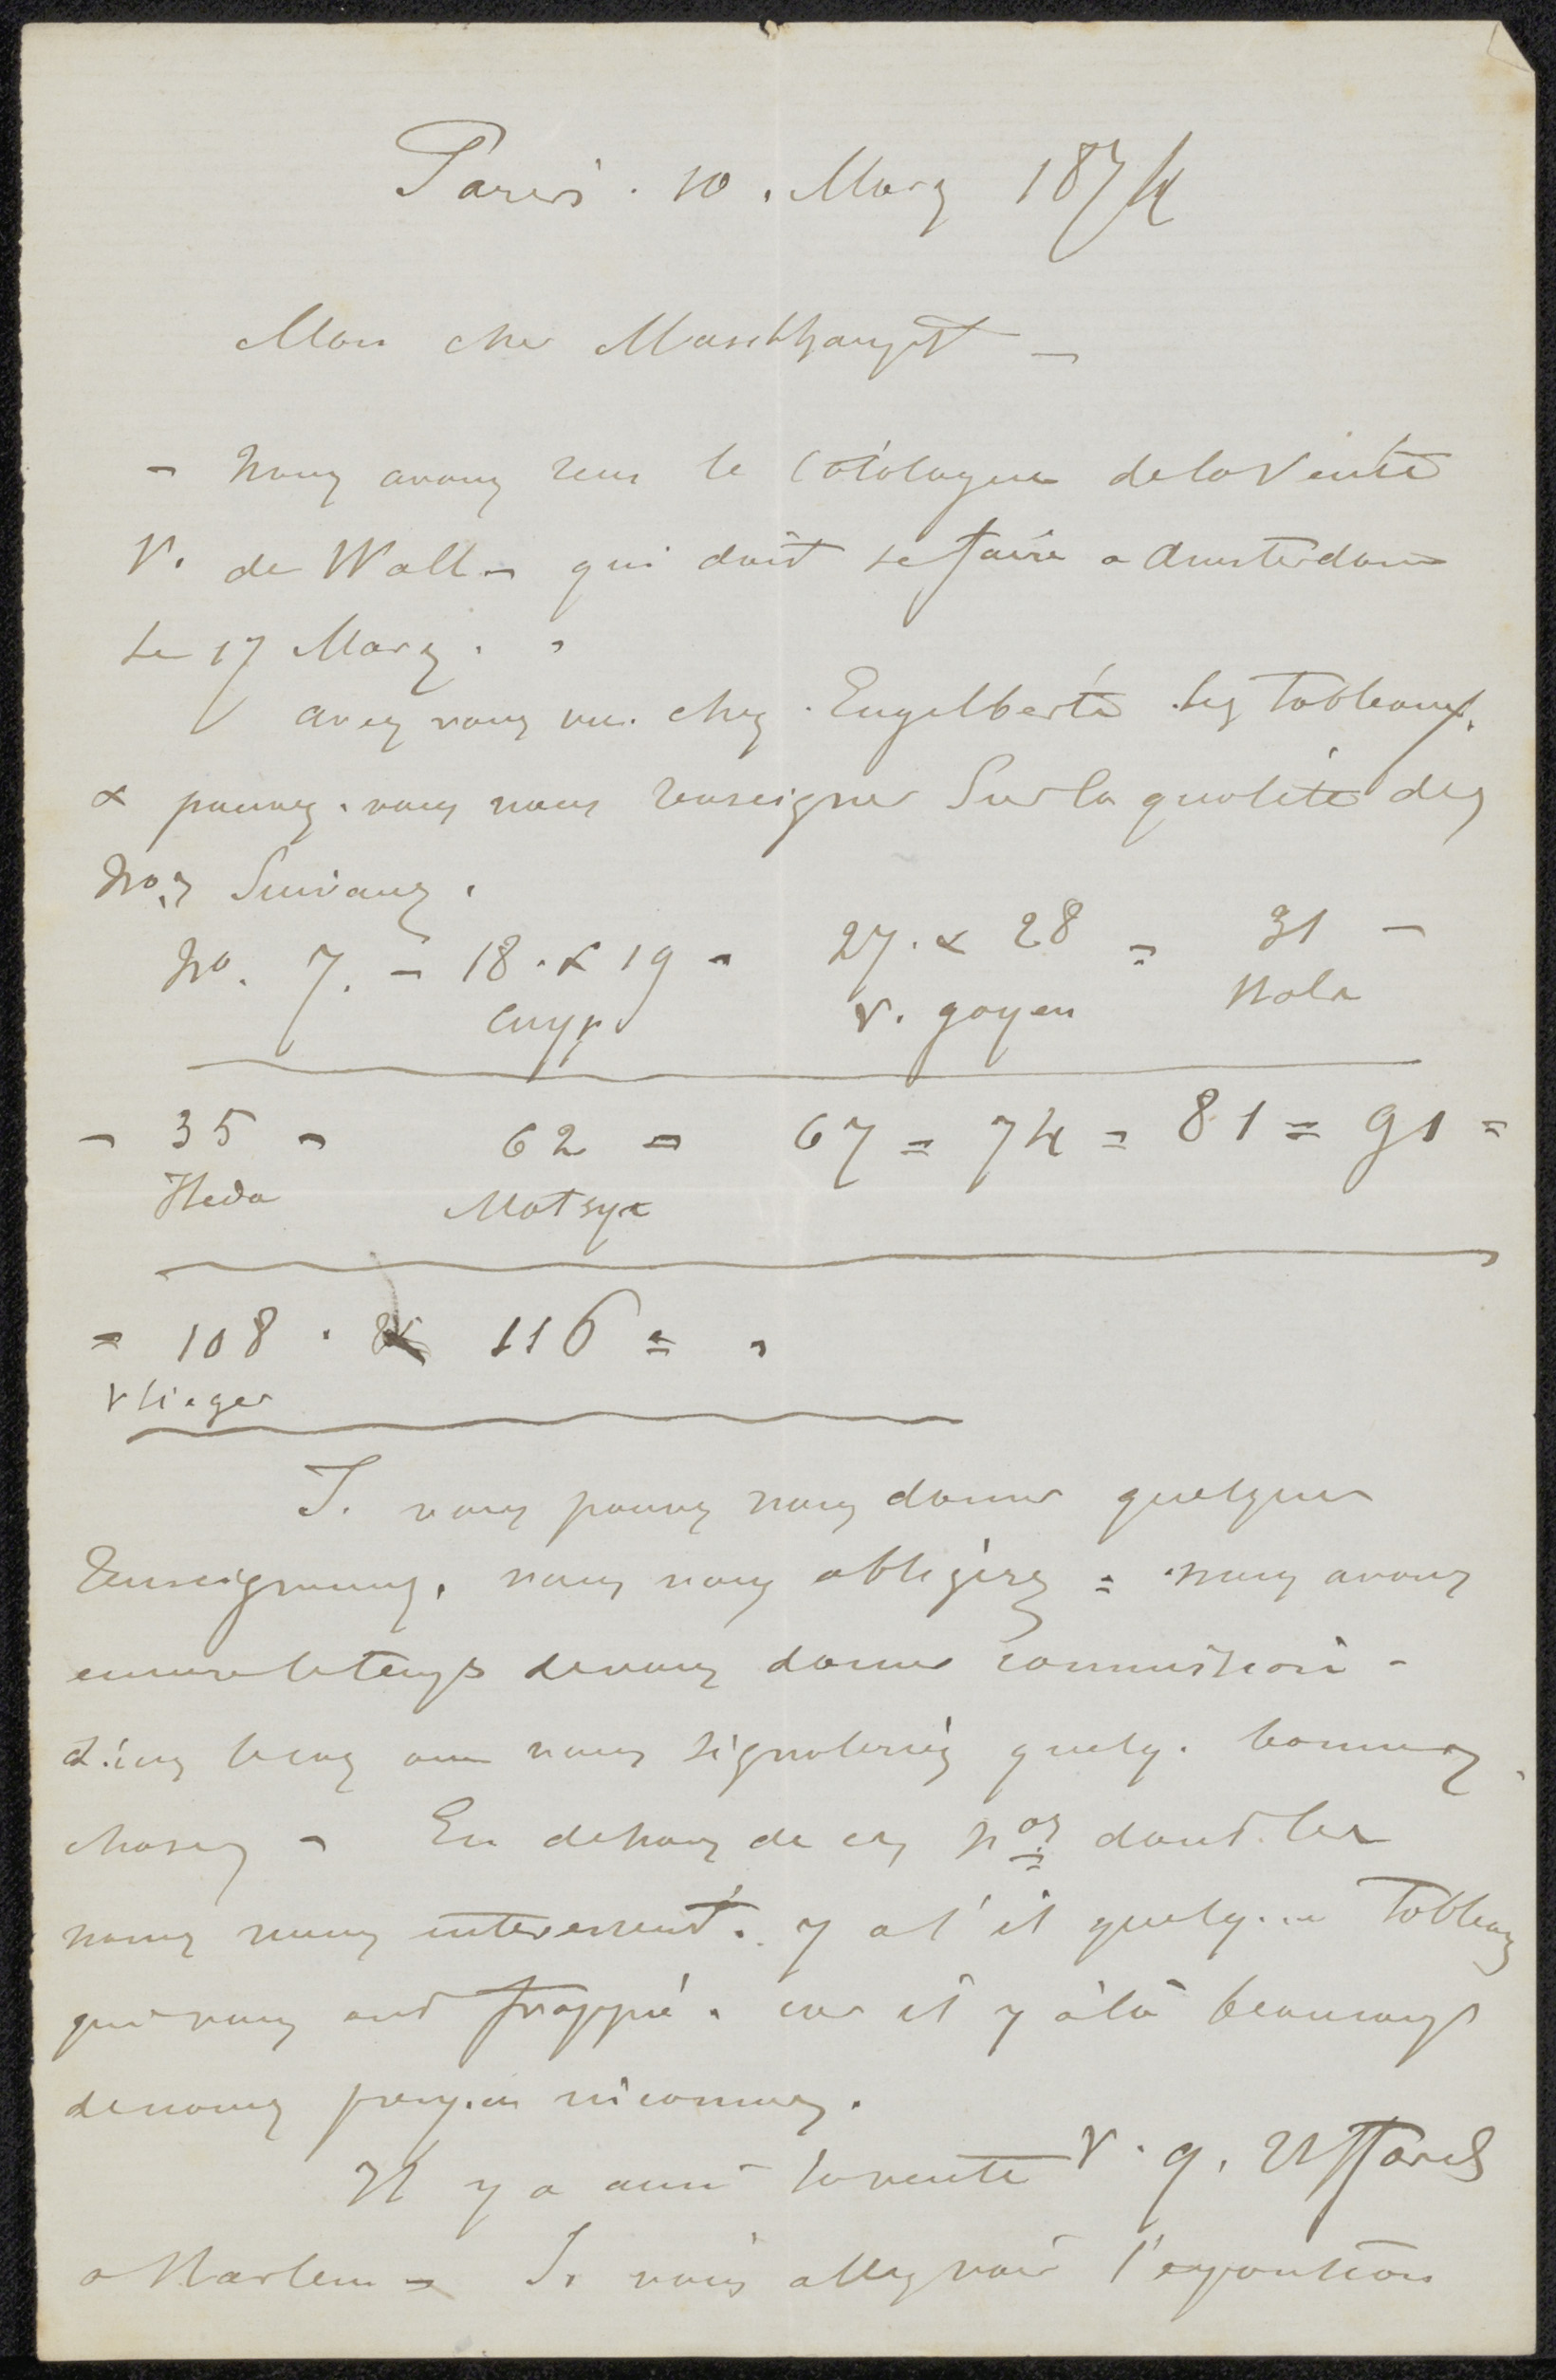 Paris. 10. Mars 1874
Mon cher Maschhaupt —
— Nous avons reçu le Catalogue de la Vente
V. de Wall — qui doit se faire a Amsterdam
le 17 Mars.
avez vous vu. chez. Engelberts les Tableaux.
& pouvez. vous nous renseigner Sur la qualité des
Nos Suivans.
No. 7. — 18. & 19 — 27. & 28 = 31 —
Cuyp v. goyen Hals
— 35 — 62 = 67 = 74 = 81 = 91 =
Heda Matsys
= 108. & 116 =
Vlieger
Si vous pouvez nous donner quelques
Renseignemens. vous nous obligerez = nous avons
encore le temps de vous donner commission —
si vous nous signaleriez quelq. bonnes
choses — En dehors de ces Nos dont les
noms nous interessent. y a t'il quelq. Tableaux
qui vous ont frappé. car il y a là beaucoup
de noms inconnus.
Il y a aussi la vente V. g. Uffords
a Harlem — Si vous allez voir l'exposition